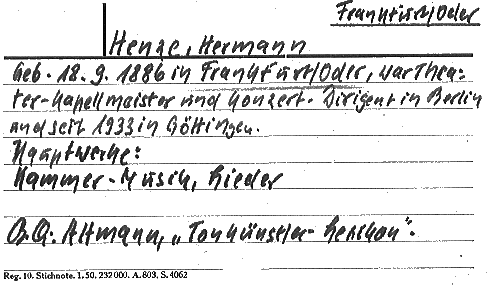 Frankfurt/Oder
Henze, Hermann
Geb. 18. 9. 1886 in Frankfurt/Oder, war Thea-
ter-Kapellmeister und Konzert-Dirigent in Berlin
und seit 1933 in Göttingen.
Hauptwerke:
Kammer-Musik, Lieder
Altmann, „Tonkünstler-Lexikon".
Reg. 10. Stichnote. 1. 50. 232000. A. 803. S. 4062